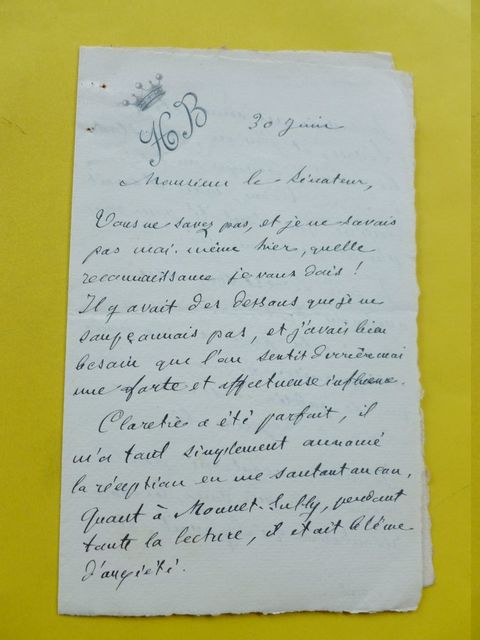 HB
30 Juin
Monsieur le Sénateur,
Vous ne savez pas, et je ne savais
pas moi-même hier, quelle
reconnaissance je vous dois !
Il y avait des dessous que je ne
soupçonnais pas, et j'avais bien
besoin que l'on sentit derrière moi
une forte et affectueuse influence.
Claretie a été parfait, il
m'a tout simplement annoncé
la réception en me sautant au cou,
Quant à Mounet-Sully, pendant
toute la lecture, il était blême
d'anxiété.